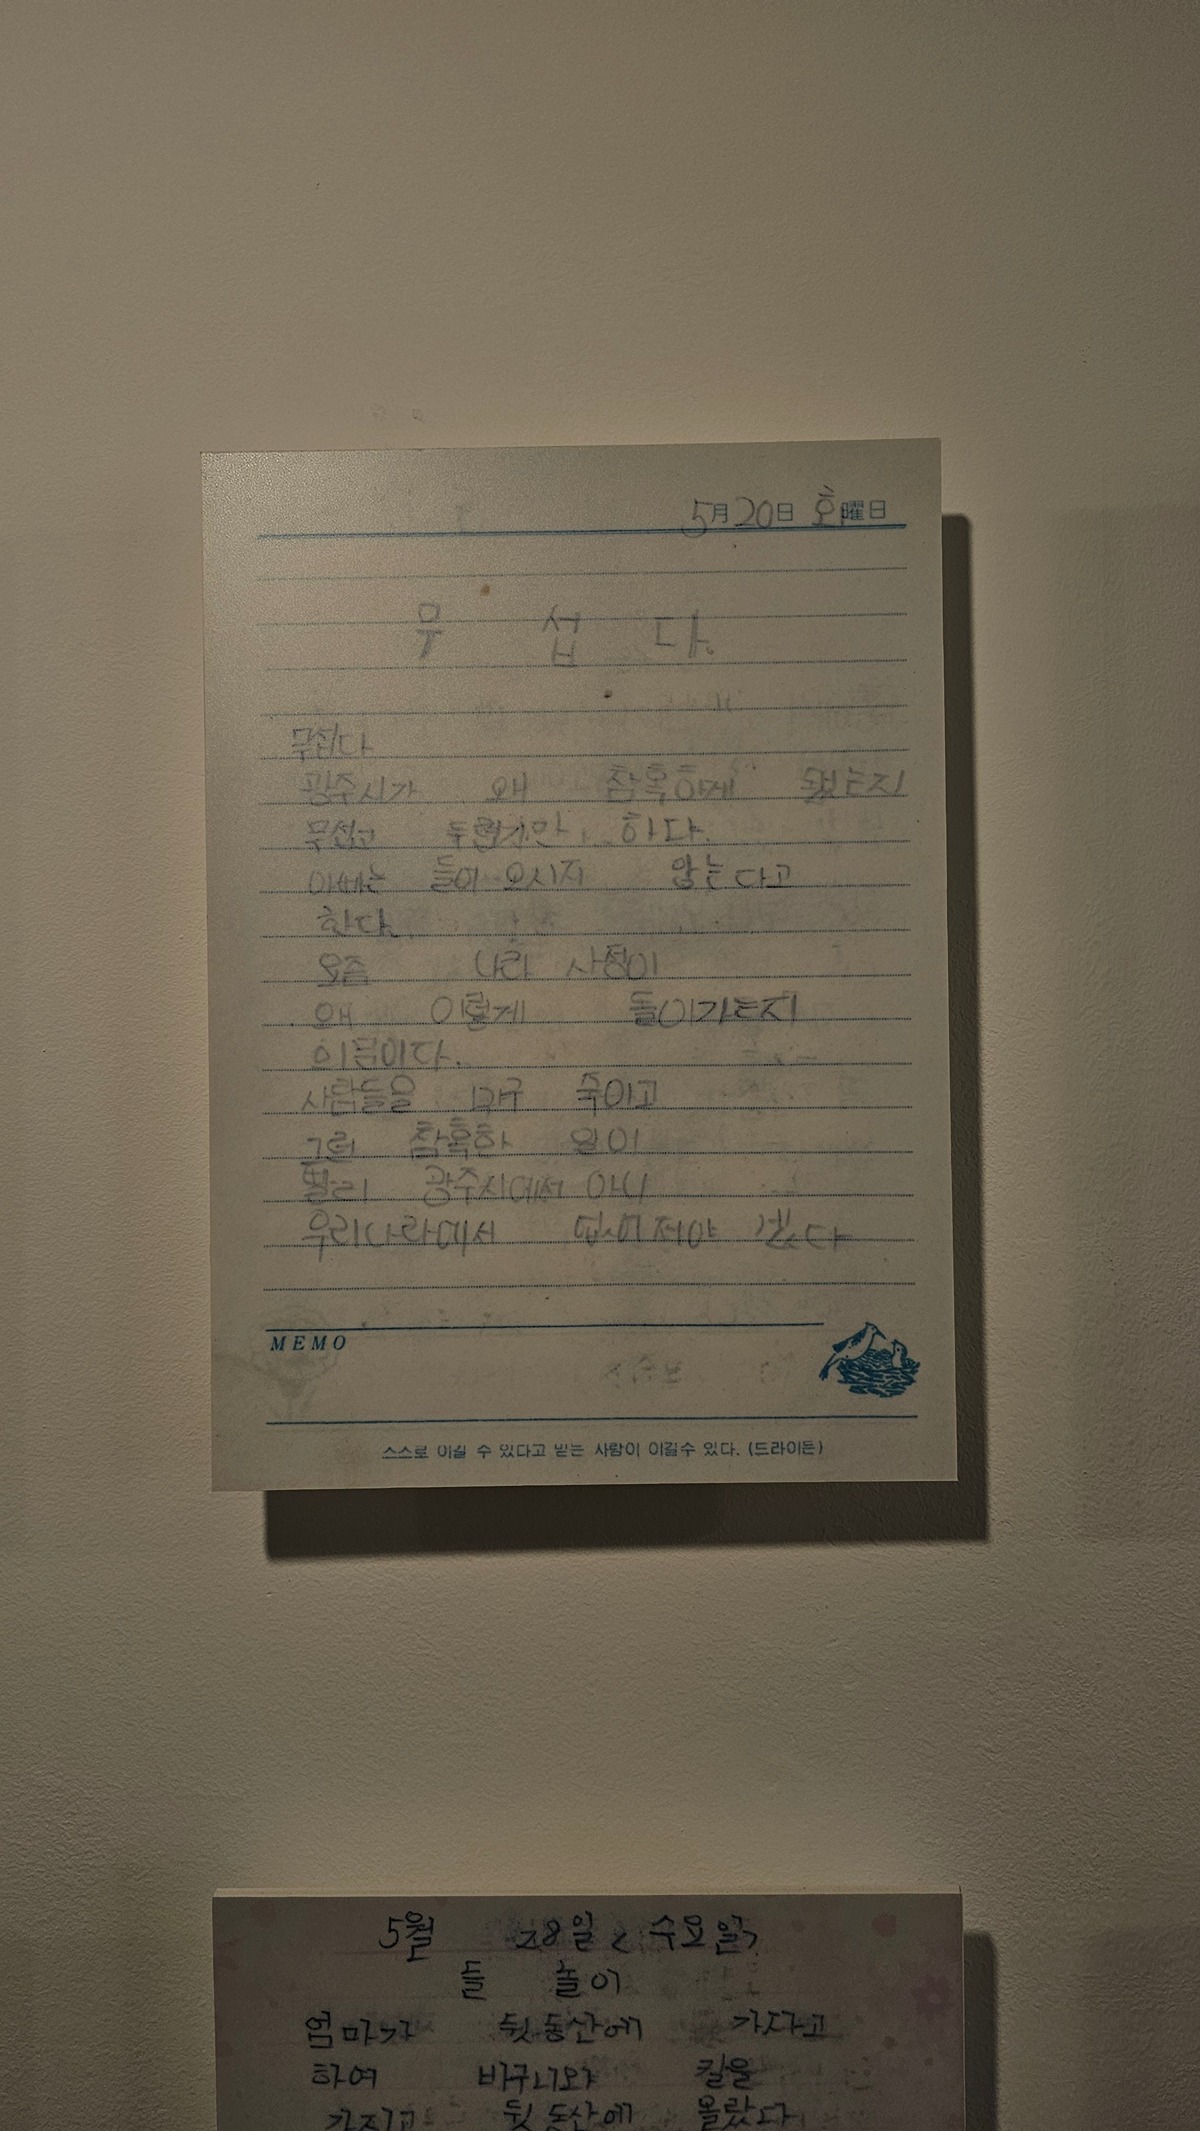 5月 20日 화曜日
무 섭 다.
무섭다
광주시가 왜 참혹하게 됐는지
무섭고 두렵기만 하다.
아빠는 들어 오시지 않는다고
한다.
요즘 나라 사정이
왜 이렇게 돌아가는지
의문이다.
사람들을 마구 죽이고
그런 참혹한 일이
빨리 광주시에서 아니
우리나라에서 없어져야 겠다
MEMO
스스로 이길 수 있다고 믿는 사람이 이길수 있다. (드라이든)
5월 28일 < 수요일>
들 놀이
엄마가 뒷동산에 가자고
하여 바구니와 칼을
가지고 뒷동산에 올랐다